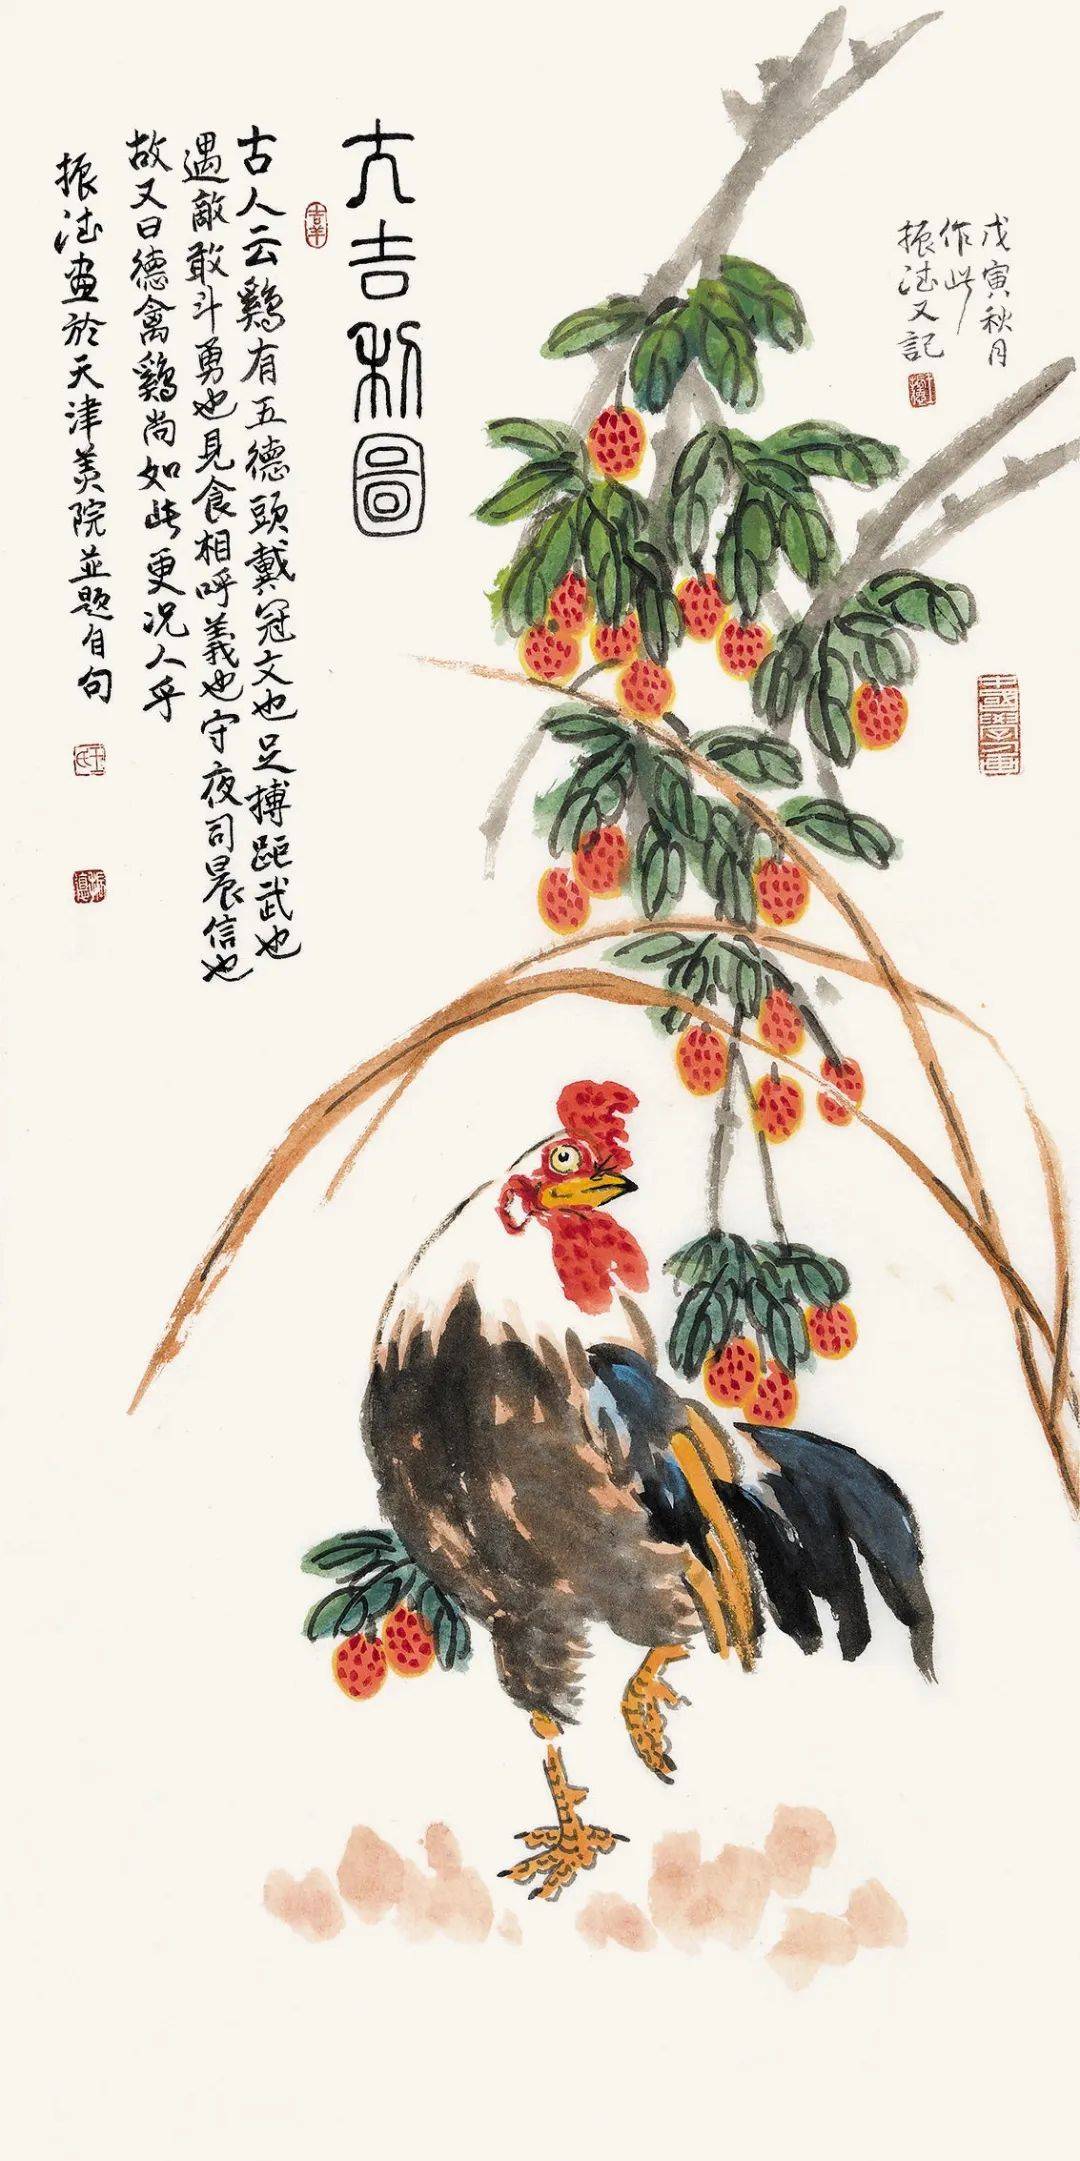 戊寅秋月
作此
振德又記
大吉利圖
古人云鷄有五德頭戴冠文也足搏距武也
遇敵敢斗勇也見食相呼義也守夜司晨信也
故又曰德禽鷄尚如此更况人乎
振德画於天津美院並题自句